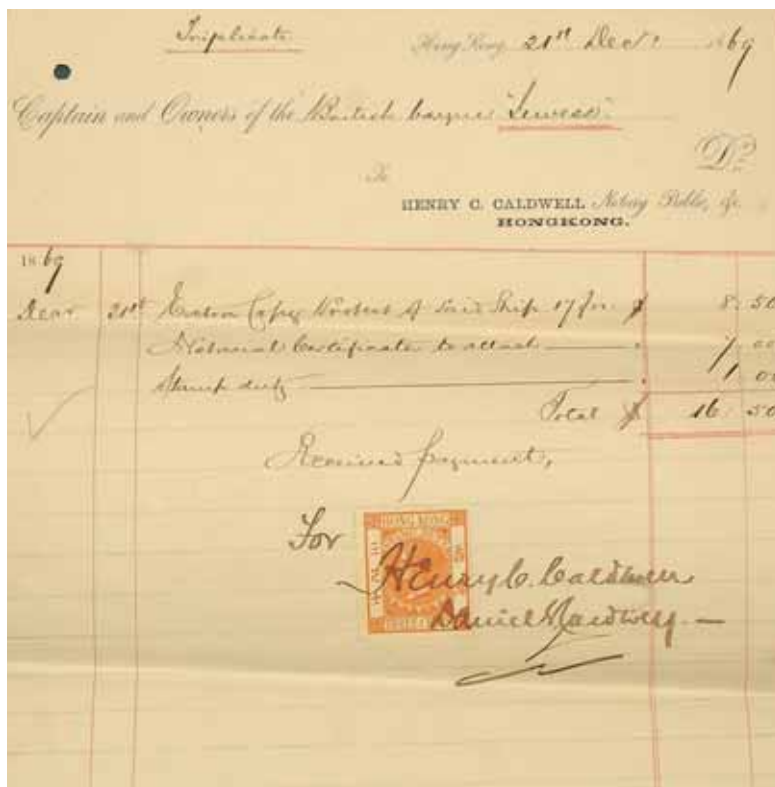 Triplicate
Hong Kong 21st Decr 1869
Captain and Owners of the British barque "Lewess"
Dr
To
HENRY C. CALDWELL Notary Public, &c.
HONGKONG.
1869
Decr 21st Extra Copy Protest of Said Ship 17 fos. $ 8.50
Notarial Certificate to attach 7.00
Stamp duty 1.00
Total $ 16.50
Received payment,
For
HONG KONG
Henry C. Caldwell
Daniel Caldwell